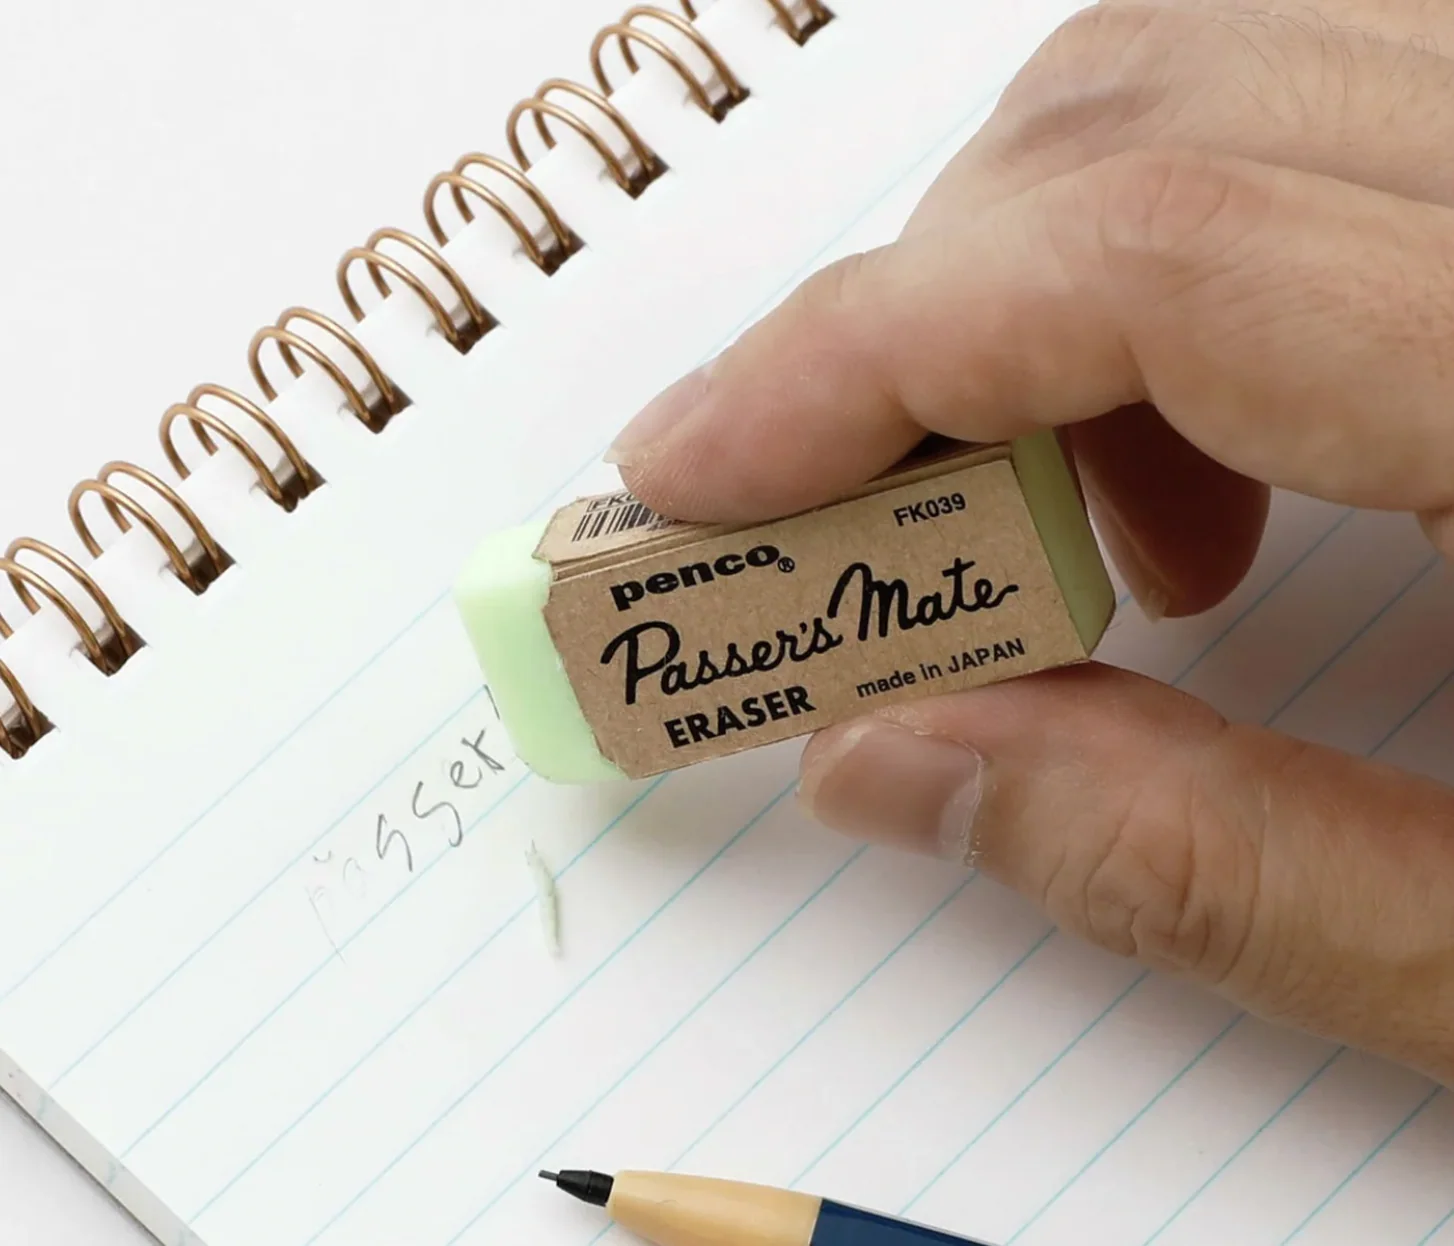 FK039
penco®
Passer's Mate
ERASER made in JAPAN
passer